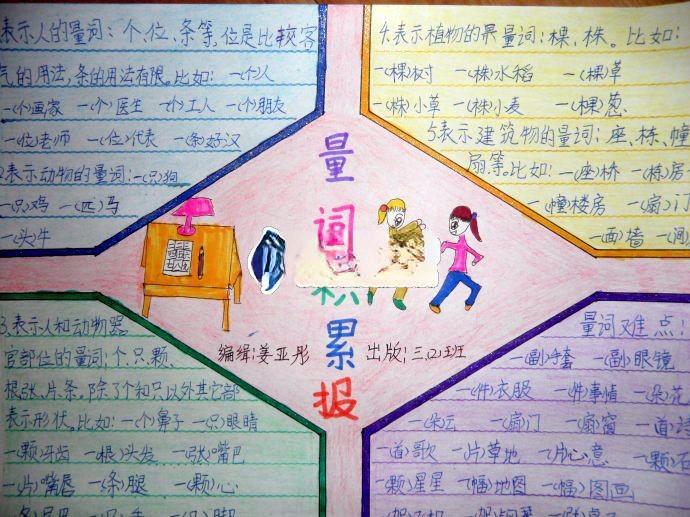 表示人的量词：个、位、条等，位是比较客
气的用法，条的用法有限。比如：一(个)人
一(个)画家 一(个)医生 一(个)工人 一(个)朋友
一(位)老师 一(位)代表 一(条)好汉
2.表示动物的量词：一(只)狗
一(只)鸡 一(匹)马
一(头)牛
4.表示植物的量词：棵、株。比如：
一(棵)树 一(株)水稻 一(棵)草
一(株)小草 一(株)小麦 一(棵)葱
5.表示建筑物的量词：座、栋、幢
扇等。比如：一(座)桥 一(栋)房
一(幢)楼房 一(扇)门
一(面)墙 一(间)
量
词
积
累
报
编缉：姜亚彤 出版：三.(2)班
3.表示人和动物器
官部位的量词：个、只、颗、
根、张、片、条。除了个和只以外其它部
表示形状。比如：一(个)鼻子 一(只)眼睛
一(颗)牙齿 一(根)头发 一(张)嘴巴
一(片)嘴唇 一(条)腿 一(颗)心
量词难点：
一(副)手套 一(副)眼镜
一(件)衣服 一(件)事情 一(朵)花
一(朵)云 一(扇)门 一(扇)窗 一(道)
一(首)歌 一(片)草地 一(片)心意 一(颗)石
一(颗)星星 一(幅)地图 一(幅)图画